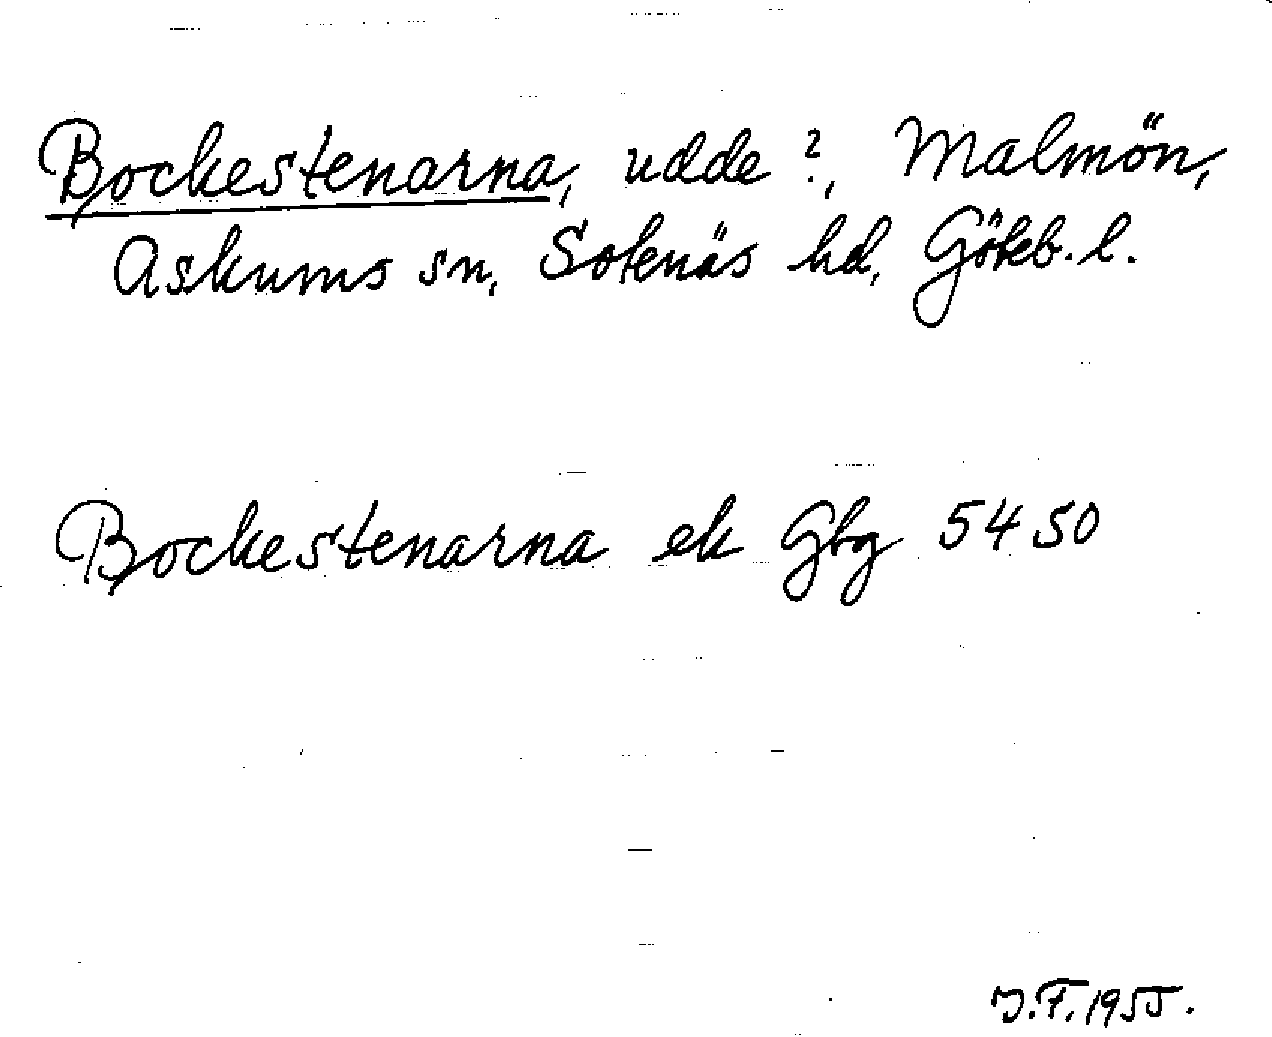 Bockestenarna, udde ?, Malmön,
Askums sn, Sotenäs hd, Göteb. l.
Bockestenarna ek Gbg 5450
J.F. 1955.